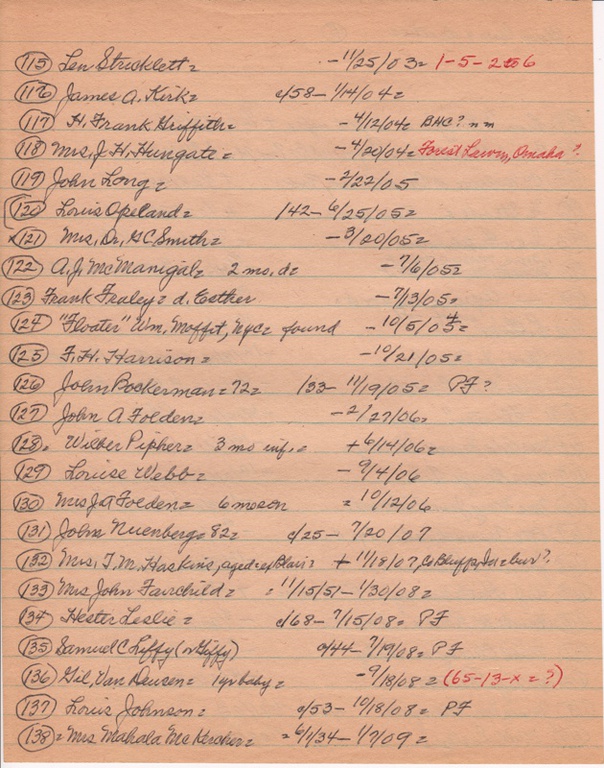 (115) Len Stricklett = - 11/25/03 = 1-5-2 to 6
(116) James A. Kirk = c/58 - 1/14/04 =
(117) H. Frank Griffith = - 4/12/04 = BHC? n m
(118) Mrs, J. H. Hungate = - 4/20/04 = Forest Lawn, Omaha?
(119) John Long = - 2/22/05
(120) Louis Opeland = 1/42 - 6/25/05 =
x(121) Mrs, Dr, G C Smith = - 3/20/05 =
(122) A. J. McManigal = 2 mo, d = - 7/6/05 =
(123) Frank Fraley = d. Esther - 7/13/05 =
(124) "Floater" Wm, Moffit, NYC = found - 10/5/04 =
(125) F. H. Harrison = - 10/21/05 =
(126) John Bockerman = 72 = 1/33 - 11/19/05 = PF?
(127) John A Folden = - 2/27/06 =
(128) = Wilber Pipher = 3 mo inf. = + 6/14/06 =
(129) Louise Webb = - 9/4/06
(130) Mrs J A Folden = 6 mo son = 10/12/06
(131) John Nuenberg = 82 = c/25 - 7/20/07
(132) Mrs, T. M. Haskins, aged = Blair = + 11/18/07, Co Bluffs, Ia = bur?
(133) Mrs John Fairchild = = 11/15/51 - 1/30/08 =
(134) Hester Leslie = c/68 - 7/15/08 = PF
(135) Samuel C Liffy (or Giffy) c/44 - 7/19/08 = PF
(136) Gil, Van Deusen = 1 yr baby = - 9/18/08 = (65-13-x = ?)
(137) Louis Johnson = c/53 - 10/18/08 = PF
(138) = Mrs Mahala McKercher = = 6/1/34 - 1/7/09 =